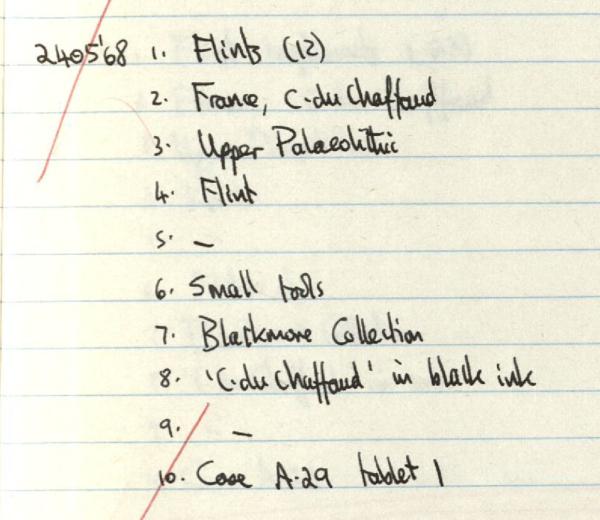 2405'68 1. Flints (12)
2. France, C. du Chaffaud
3. Upper Palaeolithic
4. Flint
5. —
6. Small tools
7. Blackmore Collection
8. 'C. du Chaffaud' in black ink
9. —
10. Case A.29 tablet 1